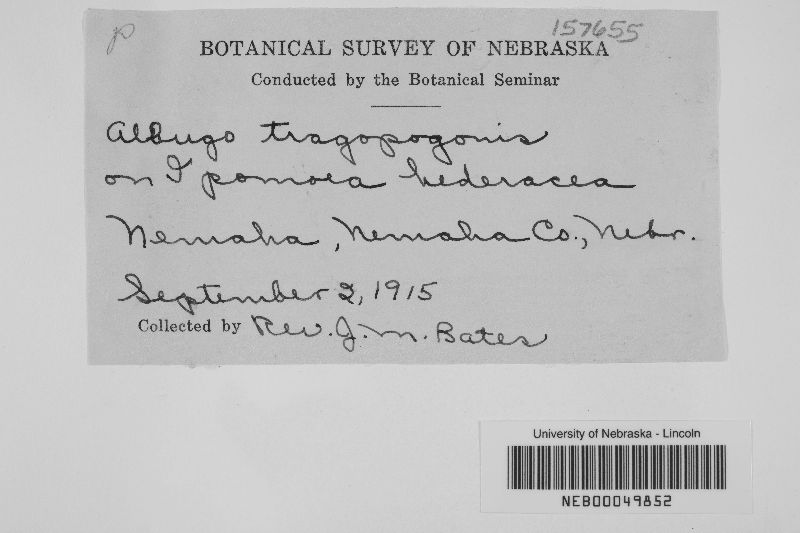 p
157655
BOTANICAL SURVEY OF NEBRASKA
Conducted by the Botanical Seminar
Albugo tragopogonis
on Ipomoea hederacea
Nemaha, Nemaha Co., Nebr.
September 2, 1915
Collected by Rev. J. M. Bates
University of Nebraska - Lincoln
NEB00049852